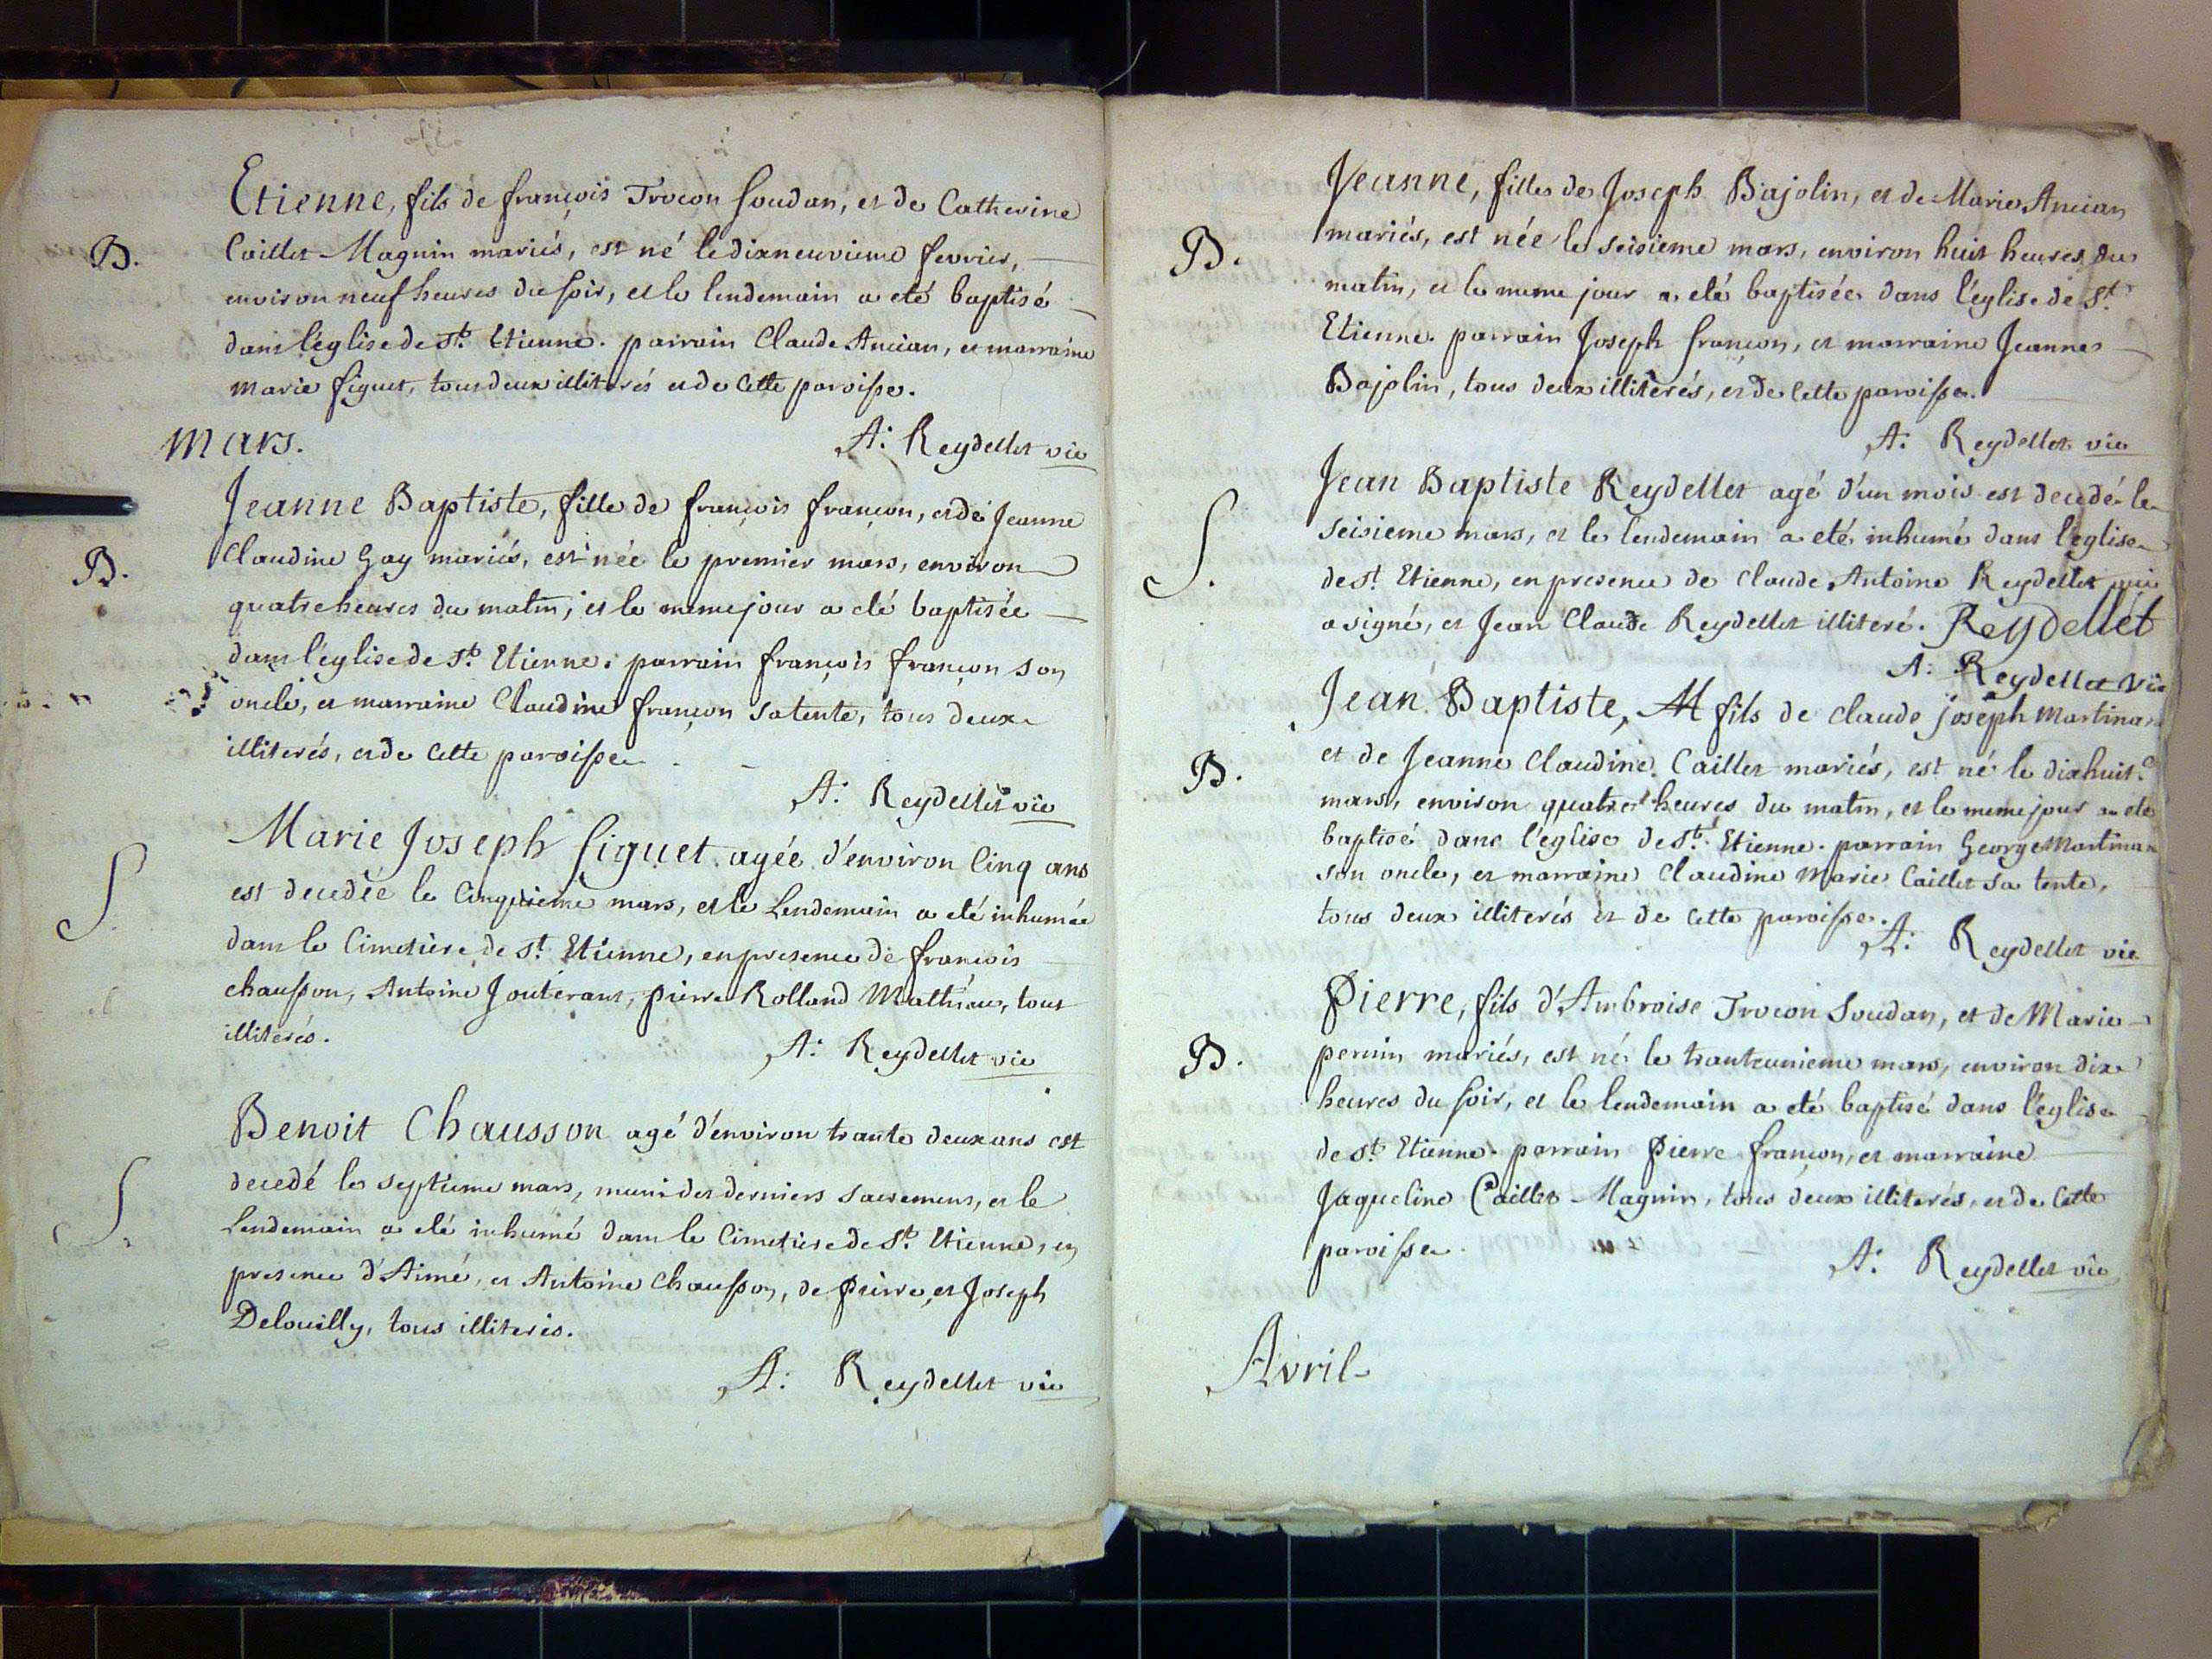 Etienne, fils de françois Trocon Soudan, et de Catherine
B.
Caillet Magnin mariés, est né le dixneuvieme fevrier,
environ neuf heures du soir, et le lendemain a eté baptisé
dans l'eglise de St. Etienne. parrain Claude Ancian, et marraine
Marie figuet, tous deux illiterés et de cette paroisse.
A: Reydellet vic
Mars.
Jeanne Baptiste, fille de françois françon, et de Jeanne
B.
Claudine Gay mariés, est née le premier mars, environ
quatre heures du matin, et le meme jour a eté baptisée
dans l'eglise de St. Etienne. parrain françois françon son
oncle, et marraine Claudine françon sa tente, tous deux
illiterés, et de cette paroisse.
A: Reydellet vic
Marie Joseph figuet agée d'environ cinq ans
S.
est decedée le cinquieme mars, et le Lendemain a eté inhumée
dans le cimetière de St. Etienne, en presence de françois
chausson, Antoine Jouterant, pierre Rolland Mathieu, tous
illiterés.
A: Reydellet vic
Benoit Chausson agé d'environ trante deux ans est
S.
decedé le septieme mars, muni des derniers sacremens, et le
Lendemain a eté inhumé dans le cimetiere de St. Etienne, en
presence d'Aimé, et Antoine chausson, de pierre, et Joseph
Delouilly, tous illiterés.
A: Reydellet vic
Jeanne, fille de Joseph Bajolin, et de Marie Ancian
B.
mariés, est née le seisieme mars, environ huit heures du
matin, et le meme jour a eté baptisée dans l'eglise de St.
Etienne. parrain Joseph françon, et marraine Jeanne
Bajolin, tous deux illiterés, et de cette paroisse.
A: Reydellet vic
Jean Baptiste Reydellet agé d'un mois est decedé le
S.
seisieme mars, et le lendemain a eté inhumé dans l'eglise
de St. Etienne, en presence de Claude Antoine Reydellet qui
a signé, et Jean Claude Reydellet illiteré. Reydellet
A: Reydellet vic
Jean Baptiste, M fils de claude joseph Martinan
et de Jeanne Claudine Caillet mariés, est né le dixhuit.e
B.
mars, environ quatre heures du matin, et le meme jour a eté
baptisé dans l'eglise de St. Etienne. parrain George Martinan
son oncle, et marraine Claudine Marie Caillet sa tente,
tous deux illiterés et de cette paroisse.
A: Reydellet vic
Pierre, fils d'Ambroise Trocon Soudan, et de Marie
B.
pernin mariés, est né le trantunieme mars, environ dix
heures du soir, et le lendemain a eté baptisé dans l'eglise
de St. Etienne. parrain Pierre françon, et marraine
Jaqueline Caillet Magnin, tous deux illiterés, et de cette
paroisse.
A: Reydellet vic
Avril